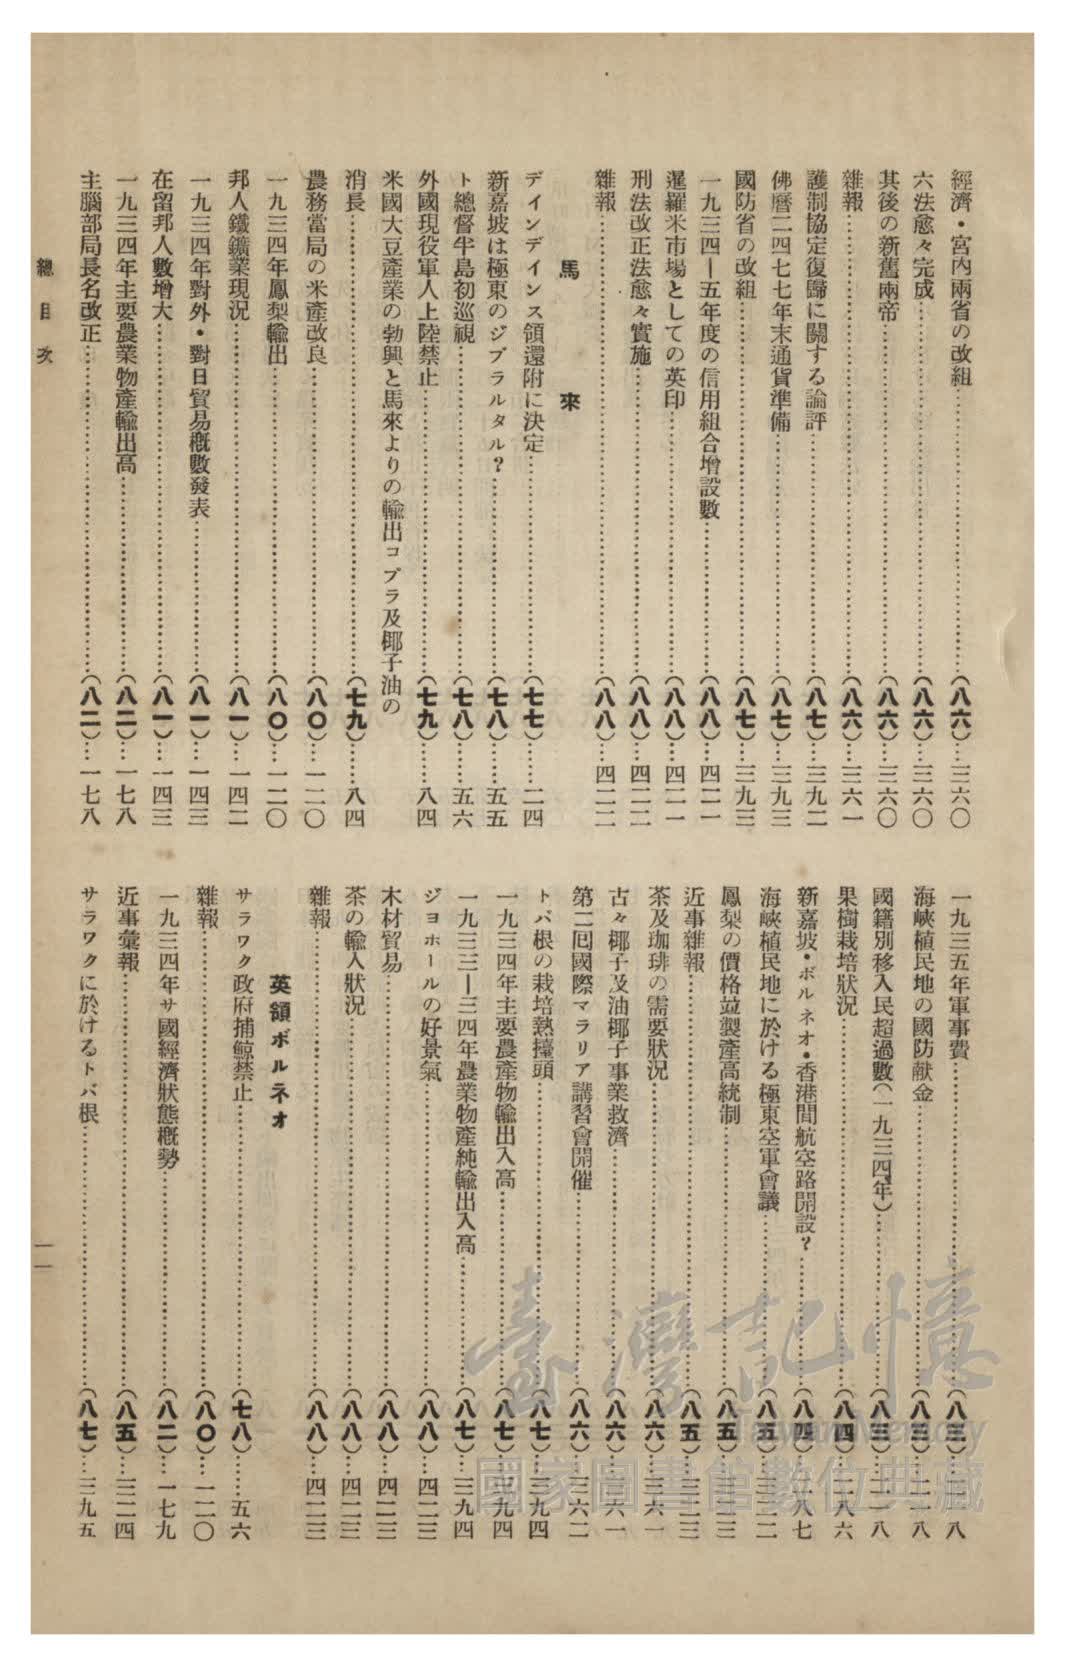 經濟・宮內兩省の改組…(八六)…三六〇
六法愈々完成…(八六)…三六〇
其後の新舊兩帝…(八六)…三六〇
雜報…(八六)…三六一
護制協定復歸に關する論評…(八七)…三九二
佛曆二四七七年末通貨準備…(八七)…三九三
國防省の改組…(八七)…三九三
一九三四—五年度の信用組合增設數…(八八)…四二一
暹羅米市場としての英印…(八八)…四二一
刑法改正法愈々實施…(八八)…四二二
雜報…(八八)…四二二
馬來
デインデインス領還附に決定…(七七)…二四
新嘉坡は極東のジブラルタル?…(七八)…五五
ト總督半島初巡視…(七八)…五六
外國現役軍人上陸禁止…(七九)…八四
米國大豆產業の勃興と馬來よりの輸出コプラ及椰子油の
消長…(七九)…八四
農務當局の米產改良…(八〇)…一二〇
一九三四年鳳梨輸出…(八〇)…一二〇
邦人鐵鑛業現況…(八一)…一四二
一九三四年對外・對日貿易槪數發表…(八一)…一四三
在留邦人數增大…(八一)…一四三
一九三四年主要農業物產輸出高…(八二)…一七八
主腦部局長名改正…(八二)…一七八
一九三五年軍事費…(八三)…八
海峽植民地の國防献金…(八三)…八
國籍別移入民超過數(一九三四年)…(八三)…八
果樹栽培狀況…(八四)…二八六
新嘉坡・ボルネオ・香港間航空路開設?…(八四)…二八七
海峽植民地に於ける極東空軍會議…(八五)…三二二
鳳梨の價格並製產高統制…(八五)…三二三
近事雜報…(八五)…三二三
茶及珈琲の需要狀況…(八六)…三六一
古々椰子及油椰子事業救濟…(八六)…三六一
第二囘國際マラリア講習會開催…(八六)…三六二
トバ根の栽培熱擡頭…(八七)…三九四
一九三四年主要農產物輸出入高…(八七)…三九四
一九三三—三四年農業物產純輸出入高…(八七)…三九四
ジヨホールの好景氣…(八八)…四二三
木材貿易…(八八)…四二三
茶の輸入狀況…(八八)…四二三
雜報…(八八)…四二三
英領ボルネオ
サラワク政府捕鯨禁止…(七八)…五六
雜報…(八〇)…一二〇
一九三四年サ國經濟狀態槪勢…(八二)…一七九
近事彙報…(八五)…三二四
サラワクに於けるトバ根…(八七)…三九五
總目次
一一
臺灣記憶
Taiwan Memory
國家圖書館數位典藏